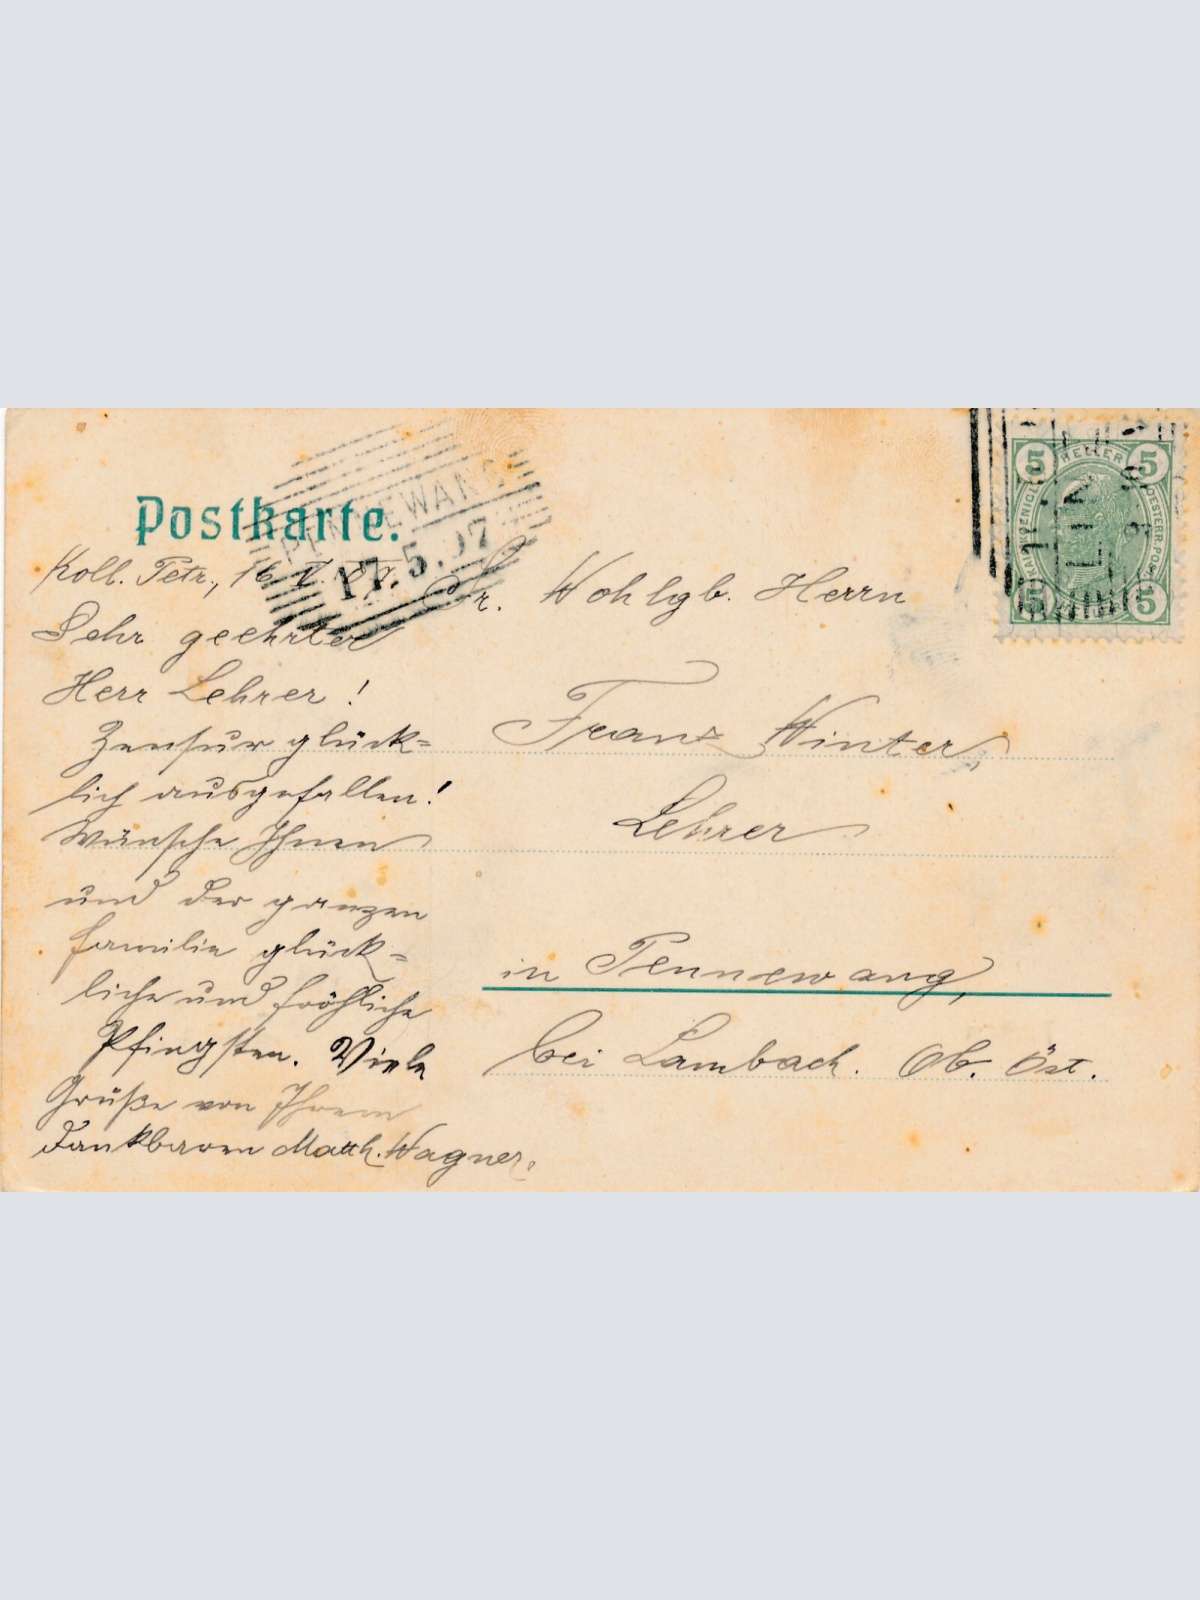 Postkarte.
PENNEWANG
17.5.07
Koll. Petr., 16. V. 07.
Sehr geehrter
Herr Lehrer!
Zensur glück=
lich ausgefallen!
Wünsche Ihnen
und der ganzen
Familie glück-
liche und fröhliche
Pfingsten. Viele
Grüße von Ihrem
dankbaren Matth. Wagner.
Sr. Wohlgb. Herrn
Franz Winter,
Lehrer
in Pennewang,
bei Lambach. Ob. Öst.
5 HELLER 5
5 5
LINZ